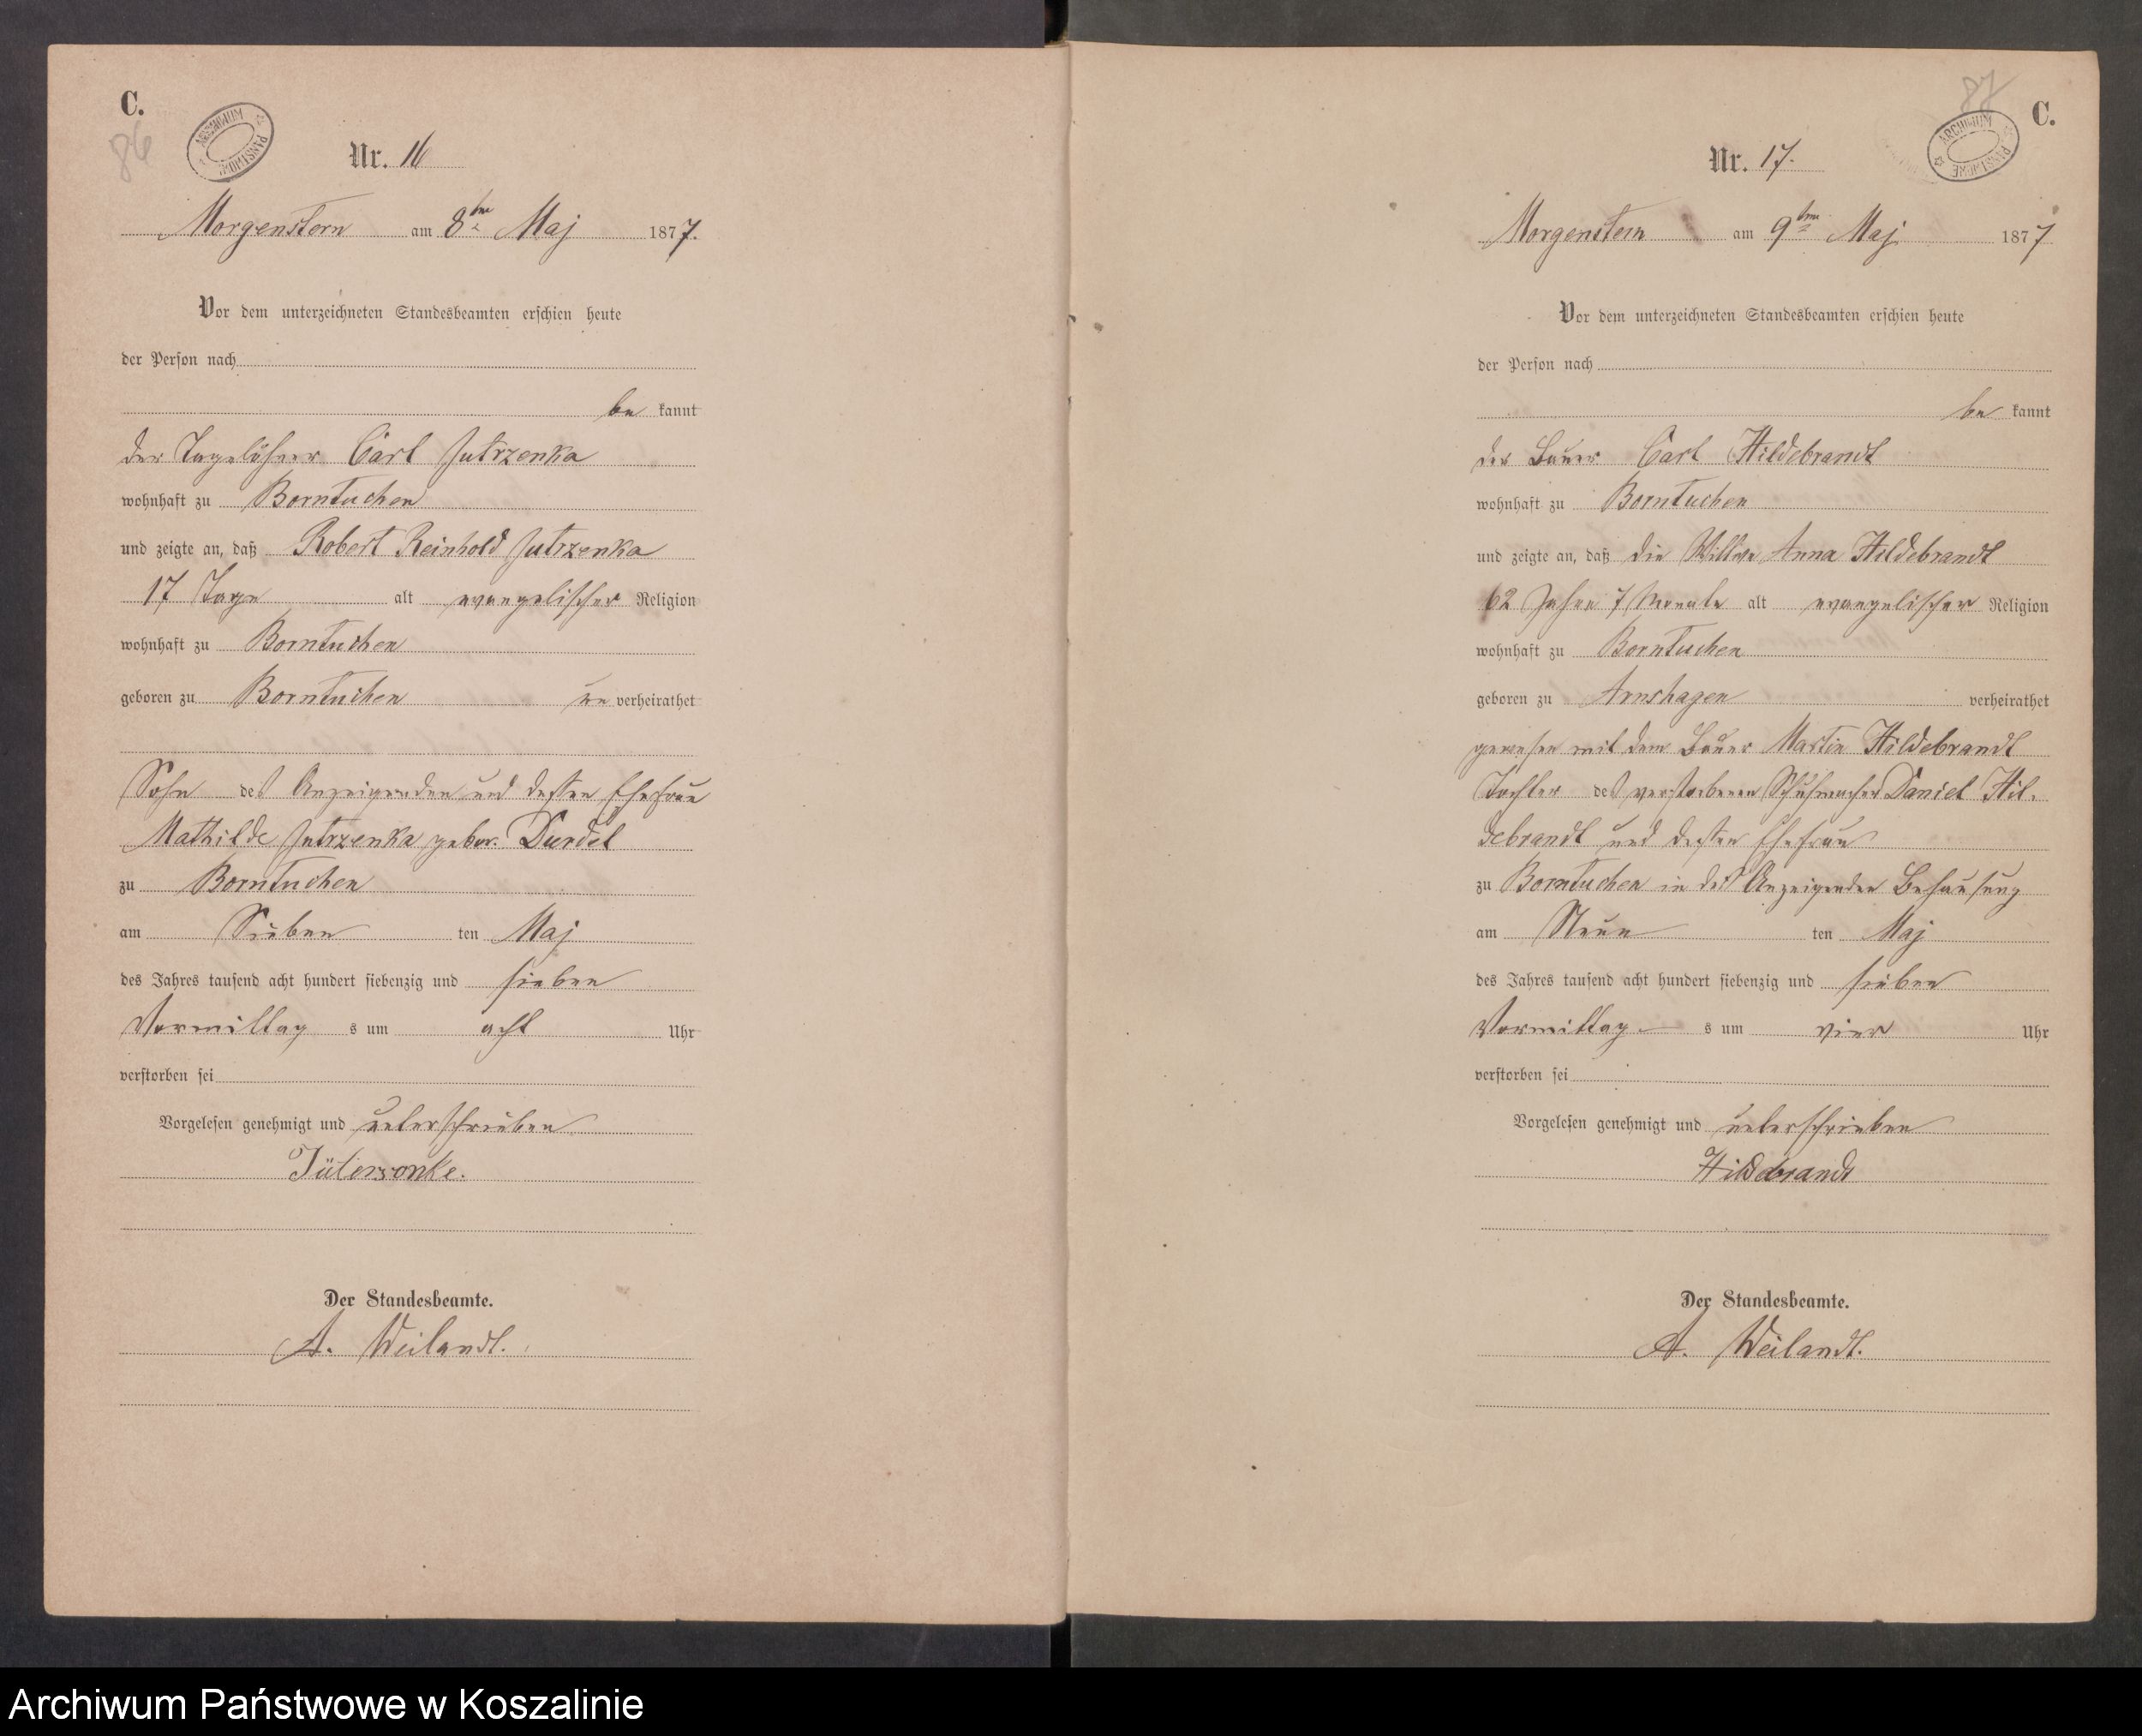 C.
86
ARCHIWUM PAŃSTWOWE
Nr. 16
Morgenstern am 8ten Maj 1877.
Vor dem unterzeichneten Standesbeamten erschien heute
der Person nach
be kannt
der Tagelöhner Carl Jutrzenka
wohnhaft zu Borntuchen
und zeigte an, daß Robert Reinhold Jutrzenka
17 Tage alt evangelischer Religion
wohnhaft zu Borntuchen
geboren zu Borntuchen un verheirathet
Sohn des Anzeigenden und dessen Ehefrau
Mathilde Jutrzenka gebor. Durdel
zu Borntuchen
am Sieben ten Maj
des Jahres tausend acht hundert siebenzig und sieben
Vormittag s um acht Uhr
verstorben sei
Vorgelesen genehmigt und unterschrieben
Jütersonke.
Der Standesbeamte.
A. Weilandt.
87
C.
ARCHIWUM PAŃSTWOWE
Nr. 17.
Morgenstern am 9ten Maj 1877
Vor dem unterzeichneten Standesbeamten erschien heute
der Person nach
be kannt
der Bauer Carl Hildebrandt
wohnhaft zu Borntuchen
und zeigte an, daß die Wittwe Anna Hildebrandt
62 Jahre 7 Monate alt evangelischer Religion
wohnhaft zu Borntuchen
geboren zu Arnshagen verheirathet
gewesen mit dem Bauer Martin Hildebrandt
Tochter des verstorbenen Schuhmacher Daniel Hil-
debrandt und dessen Ehefrau
zu Borntuchen in des Anzeigenden Behausung
am Neun ten Maj
des Jahres tausend acht hundert siebenzig und sieben
Vormittag s um vier Uhr
verstorben sei
Vorgelesen genehmigt und unterschrieben
Hildebrandt
Der Standesbeamte.
A. Weilandt.
Archiwum Państwowe w Koszalinie